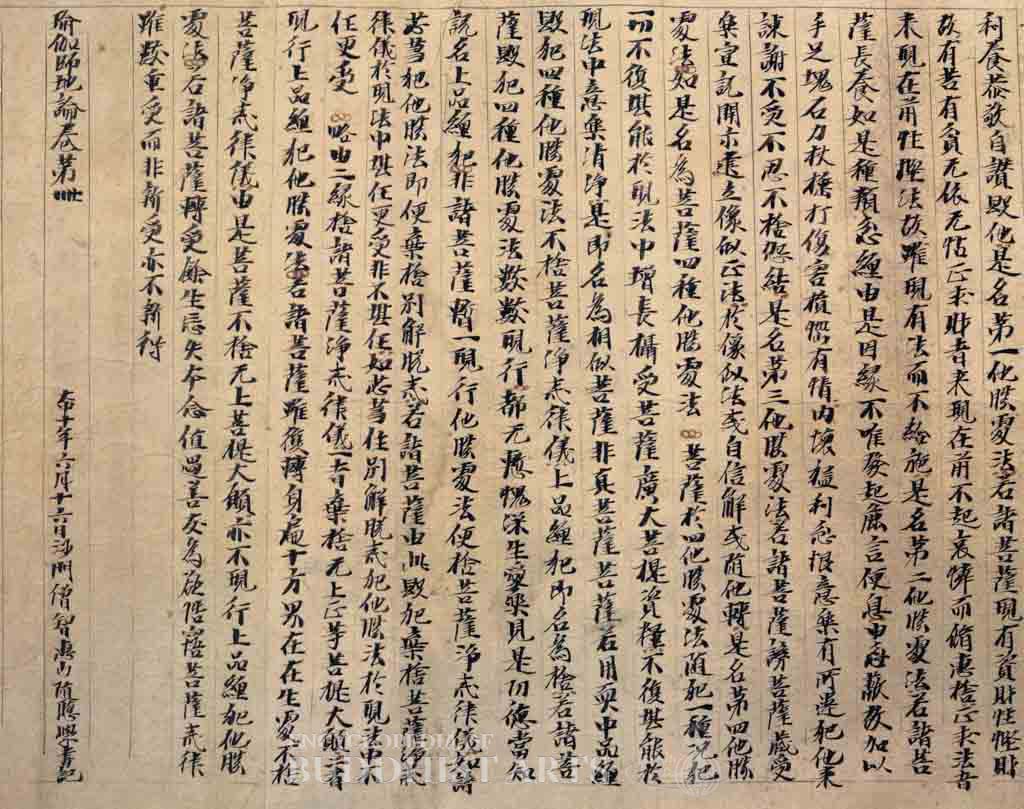 利養恭敬自讚毀他是名第一他勝處法若諸菩薩現有資財性慳財
故有苦有貧无依无怙正求財者來現在前不起哀憐而脩惠捨正求法者
來現在前性慳法故雖現有法而不給施是名第二他勝處法若諸菩
薩長養如是種類忿纏由是因緣不唯發起麁言便息由忿蔽故加以
手足塊石刀杖捶打傷害損惱有情內懷猛利忿恨意樂有所違犯他來
諫謝不受不忍不捨怨結是名第三他勝處法若諸菩薩謗菩薩藏愛
樂宣說開示建立像似正法於像似法或自信解或隨他轉是名第四他勝
處法如是名為菩薩四種他勝處法 菩薩於四他勝處法隨犯一種況犯
一切不復堪能於現法中增長攝受菩薩廣大菩提資糧不復堪能於
現法中意樂清淨是即名為相似菩薩非真菩薩菩薩若用耎中品纏
毀犯四種他勝處法不捨菩薩淨戒律儀上品纏犯即名為捨若諸菩
薩毀犯四種他勝處法數數現行都无慙愧深生愛樂見是功德當知
說名上品纏犯非諸菩薩暫一現行他勝處法便捨菩薩淨戒律儀如諸
苾芻犯他勝法即便棄捨別解脫戒若諸菩薩由此毀犯棄捨菩薩淨戒
律儀於現法中堪任更受非不堪任如苾芻住別解脫戒犯他勝法於現法中不
任更受 略由二緣捨諸菩薩淨戒律儀一者棄捨无上正等菩提大願二者
現行上品纏犯他勝處法若諸菩薩雖復轉身遍十方界在在生處不捨
菩薩淨戒律儀由是菩薩不捨无上菩提大願亦不現行上品纏犯他勝
處法若諸菩薩轉受餘生忘失本念值遇善友為欲悟寤菩薩戒律
雖數重受而非新受亦不新得
瑜伽師地論卷第卌
十年六月十六日沙門僧智惠山隨聽學書記
ENCYCLOPEDIA OF
BUDDHIST ARTS